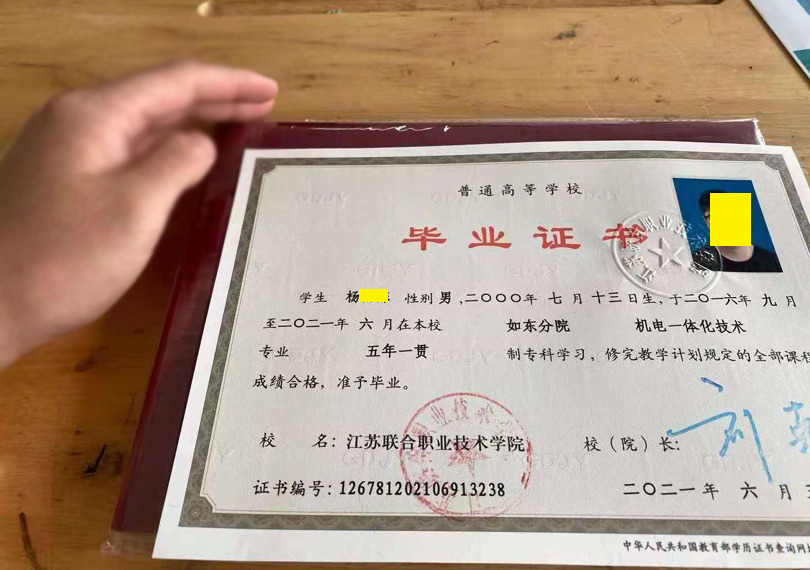 普通高等学校
毕业证书
学生 杨 性别 男,二〇〇〇年 七 月 十三 日生,于二〇一六年 九 月
至二〇二一年 六 月在本校 如东分院 机电一体化技术
专业 五年一贯 制专科学习,修完教学计划规定的全部课程
成绩合格,准予毕业。
校 名: 江苏联合职业技术学院 校(院)长:
证书编号: 126781202106913238 二〇二一年 六 月
中华人民共和国教育部学历证书查询网